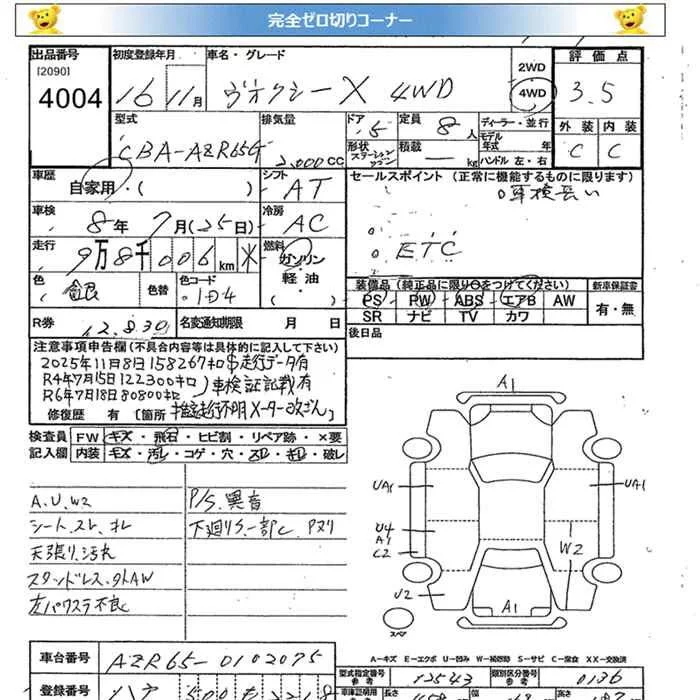 完全ゼロ切りコーナー
出品番号 初度登録年月 車名・グレード 2WD 評価点
[2090]
4004 16 11月 ヴォクシー X 4WD 4WD 3.5
型式 排気量 ドア 定員 ディーラー・並行 外装 内装
CBA-AZR65G 2,000cc 5 8人 モデル年式 年 C C
形状 ステーションワゴン 積載 ー kg ハンドル 左・右
車歴 シフト セールスポイント (正常に機能するものに限ります)
自家用・( ) AT 車検長い
車検 冷房
8年 7月(25日) AC
走行 燃料 ETC
9万8千006km ガソリン
軽油
色 色替 色コード ( ) 装備品(純正品に限り○をつけてください) 新車保証書
銀 1D4 PS PW ABS エアB AW 有・無
SR ナビ TV カワ
R券 12,830 名変通知期限 月 日 後日品
注意事項申告欄(不具合内容等は具体的に記入して下さい)
2025年11月8日158267キロ 走行データ有
R4年7月15日122300キロ 車検証記載有
R6年7月18日80800キロ
修復歴 有 [箇所 推定走行不明メーター改ざん
検査員 FW キズ・飛石・ヒビ割・リペア跡・×要
記入欄 内装 キズ・汚レ・コゲ・穴・スレ・キレ・破レ
A.U.W2 P/S.異音
シート.スレ.オレ 下廻りサ.一部C.Pヌリ
天張り.汚れ
スタッドレス.外AW
左パワステ不良
A1
UA1 UA1
U4
A1
C2 W2
U2
A1
スペア
A-キズ E-エクボ U-凹み W-補修跡 S-サビ C-腐食 XX-交換済
車台番号 AZR65-0102075 型式指定番号 参考 12543 類別区分番号 参考 0136
登録番号 車庫証明用 長さ 幅 高さ